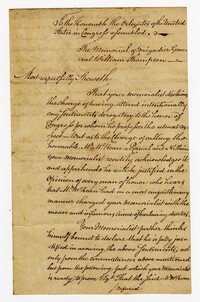 To the Honorable the Delegates of the United
States in Congress assembled.
The Memorial of Brigadier Gene-
ral William Thompson
Most respectfully Sheweth
That your memorialist declines
the Charge of having uttered intentionally
any sentiments derogatory to the honor of
Congress for whom he professes the utmost re-
spect But as to the Charge of calling the
honorable Mr McKean a Rascal and a Villain
your Memorialist readily acknowledges it
and apprehends he will be justified in the
Opinion of every man of honor who hears
that Mr McKean had in a most unjustifiable
manner charged your Memorialist with the
mean and infamous Crime of
Your Memorialist further thinks
himself bound to declare that he is fully jus-
tified in avowing the above Sentiments, not
only from the circumstances above mentioned
but from the following fact which your Memorialist
is ready to prove Viz. That the said Mr McKean